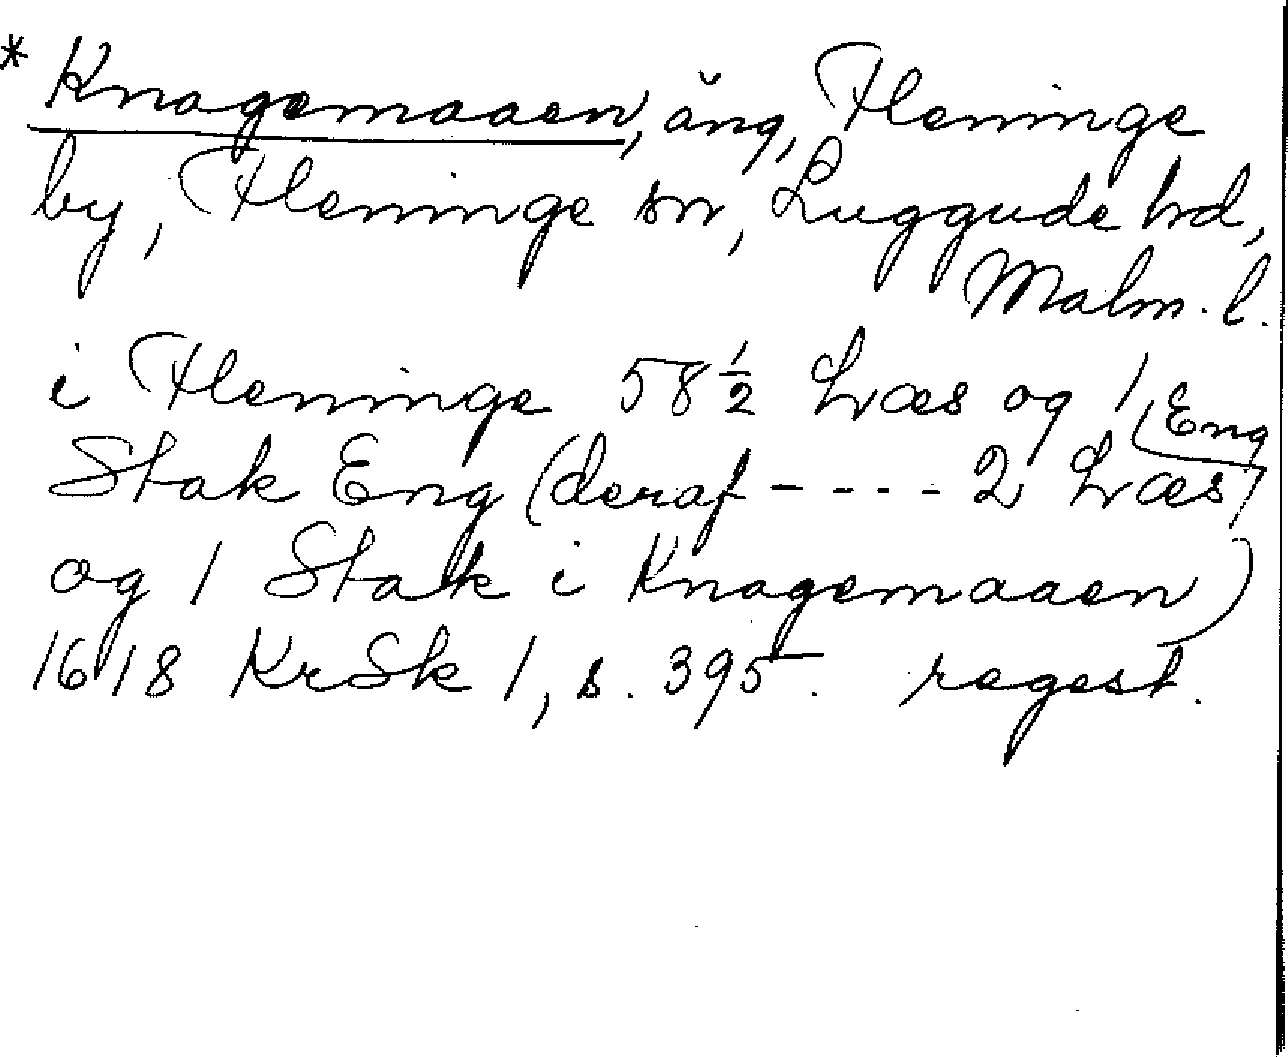 * Knagemaaen, äng, Fleninge
by, Fleninge sn, Luggude hd,
Malm. l.
i Fleninge 58 ½ Læs og 1
Stak Eng (deraf - - - - 2 Læs Eng
og 1 Stak i Knagemaaen)
1618 KrSk 1, s. 395. regest.